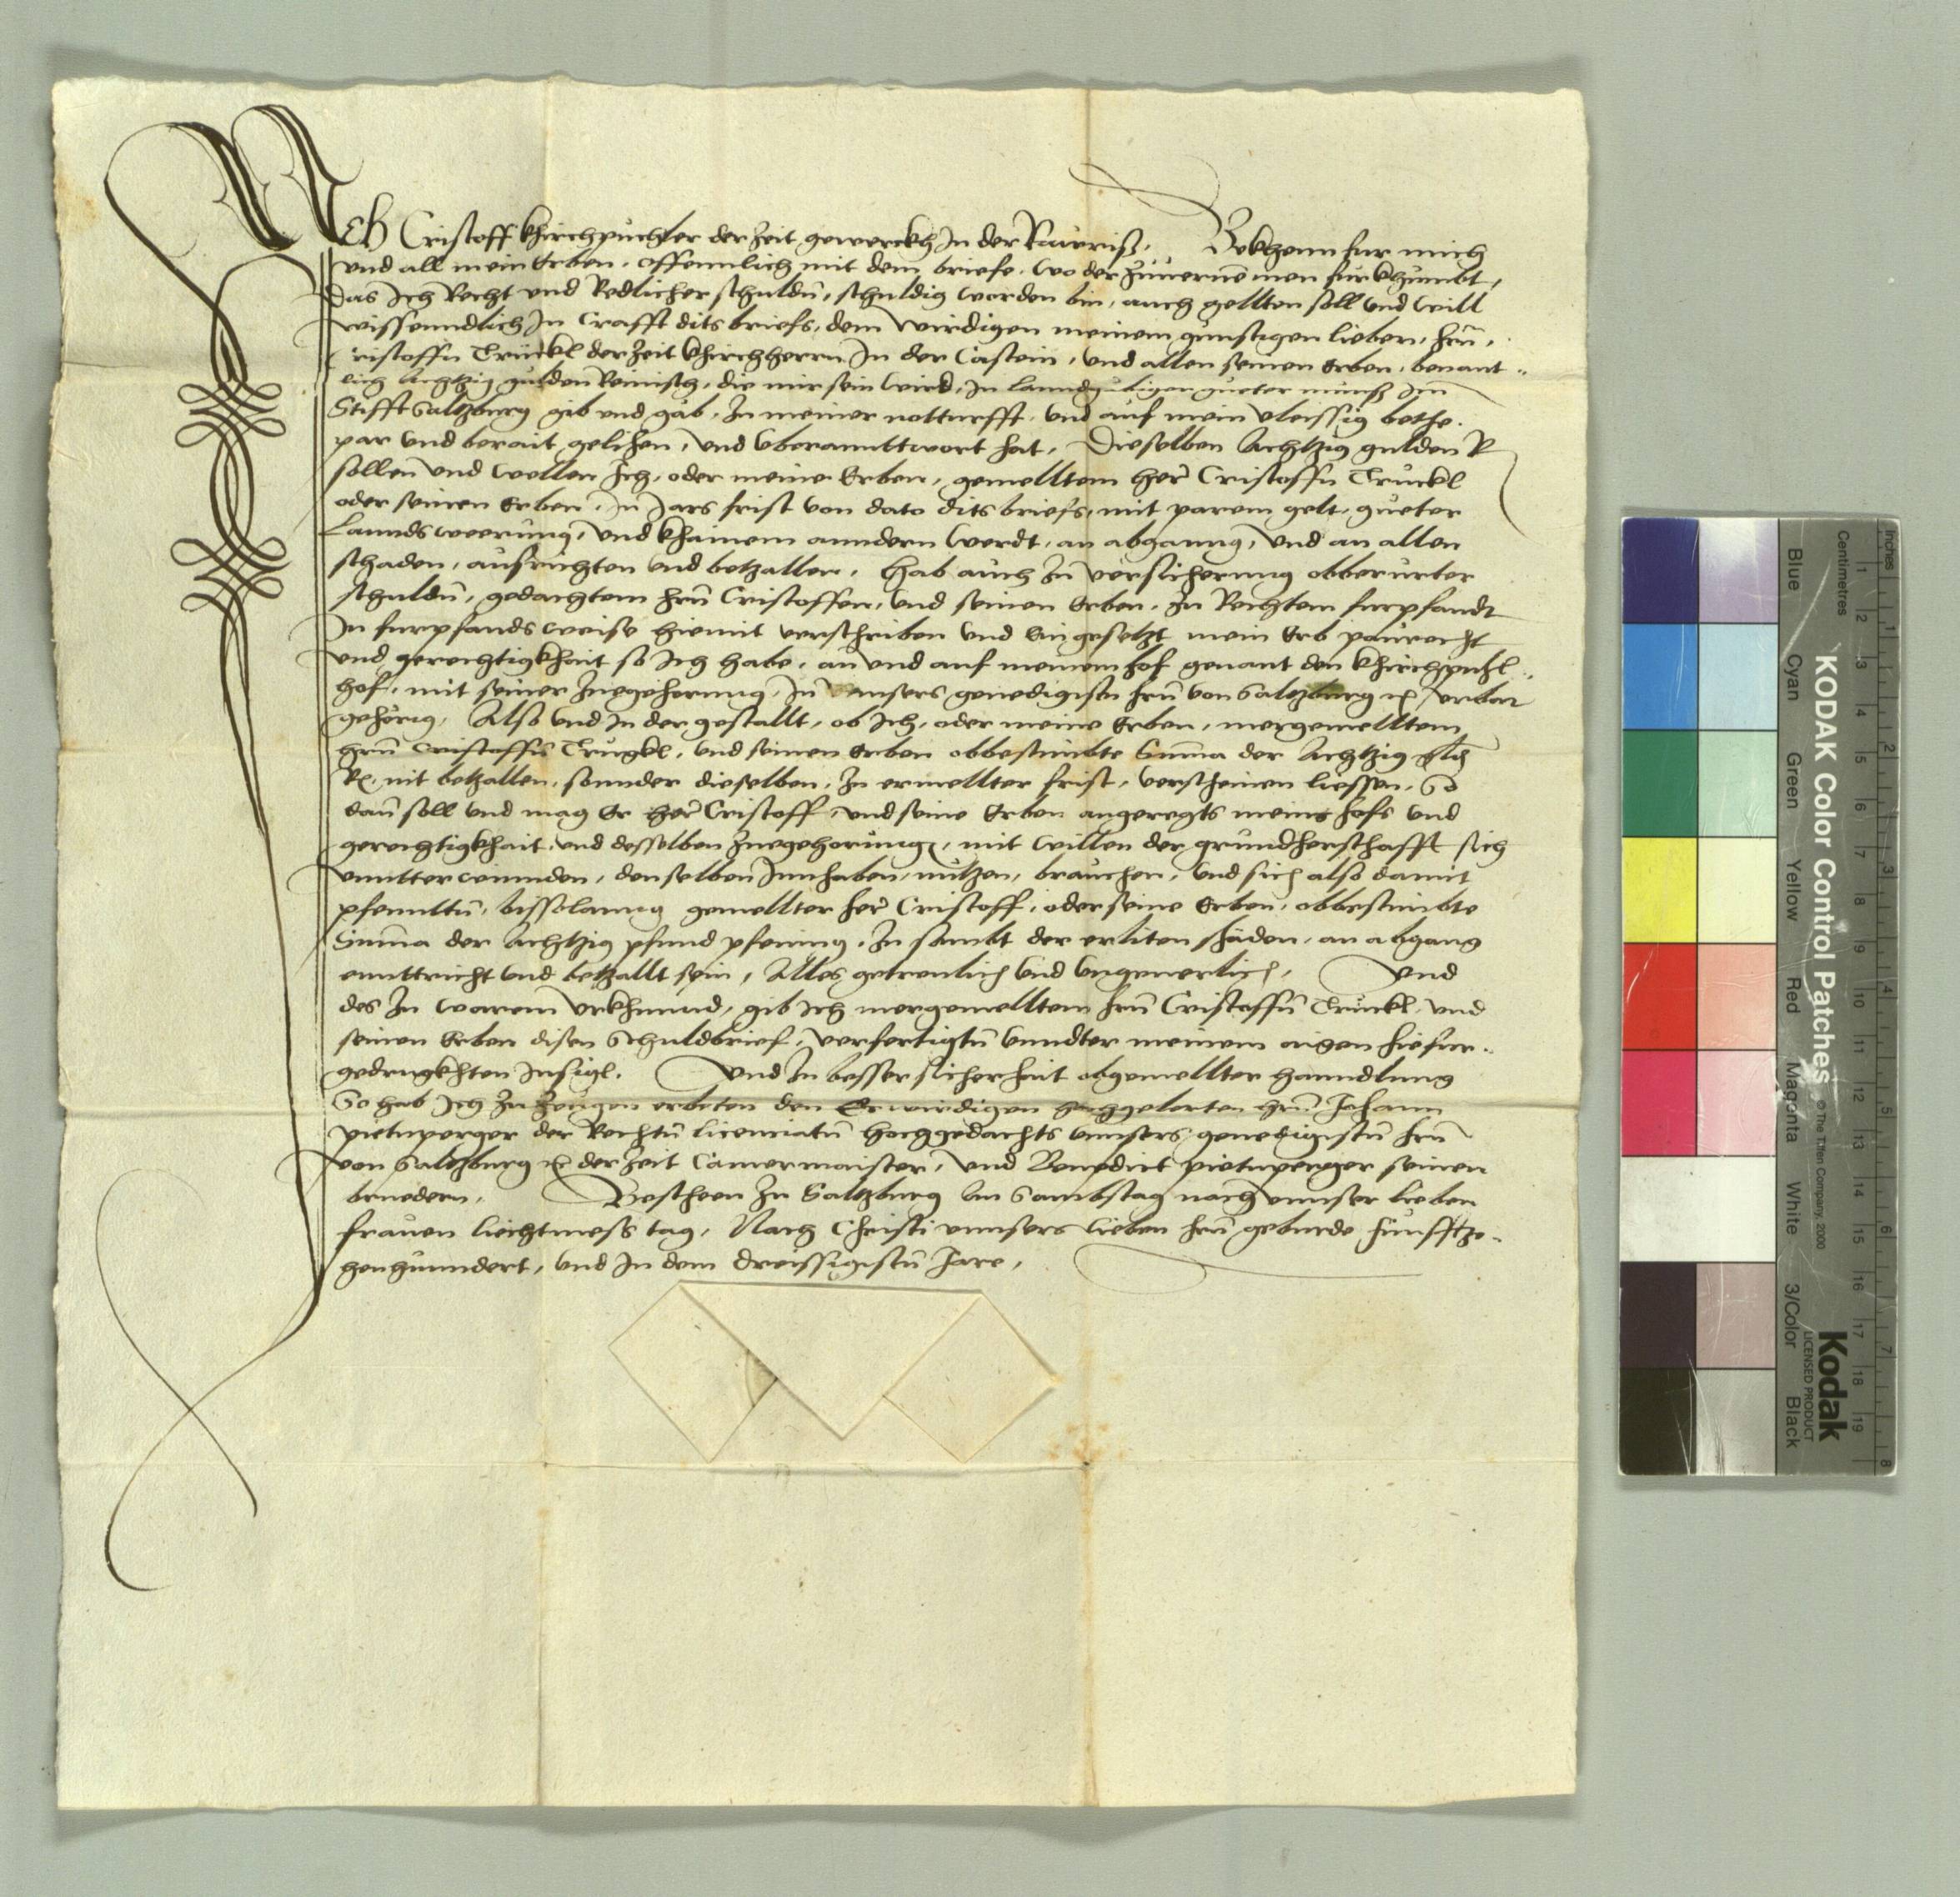 Ich Cristoff Khirchpuchler der Zeit gewerckh In der Raurriß, Bekhenn fur mich
vnd all mein Erben, offennlich mit dem briefe, wo der zuuernemen furkhumbt,
Das Ich Recht und Redlicher schuldn̄, schuldig worden bin, auch gellten soll vnd will
wissenndlich In Crafft dits briefs, dem wirdigen meinem gunstigen lieben, hrn̄,
Cristoffn Trückl der Zeit khirchherrn In der Castein, vnd allen seinen Erben, benant-
lich Achtzig gulden Reinisch, die mir sein wird, In lanndgebigen gueter münß Im
Stifft Saltzburg gib vnd gäb, In meiner notturfft, vnd auf mein vleissig bethe,
par vnd berait gelihen, vnd vberanttwort hat, Dieselben Achtzig gulden R
sollen vnd wellen Ich, oder meine Erben, gemelltem her̄ Cristoffn Trückl
oder seinen Erben, In Jars frist von dato dits briefs, mit parem gelt, gueter
Lanndsweerung, vnd khainem anndern werdt, an abganng, vnd an allen
schaden, ausrichten vnd betzallen, Hab auch Zu versicherung obberurter
schuldn̄, gedachtem hrn̄ Cristoffen, vnd seinen Erben, Zu Rechtem furpfandt
In furpfands weise hiemit verschriben vnd Eingesetzt mein Erb paurecht
vnd gerechtigkhait so Ich habe, an vnd auf meinem hof genant den khirchpuhl-
hof, mit seiner Zuegehorung, In vnnsers genedigistn hrn̄ von Saltzburg rc̄ vrbar
gehörig, Also vnd In der gestallt, ob Ich, oder meine Erben, mergemelltem
hrn̄ Cristoffn Trugkl, vnd seinen Erben obbestimbte Sum̄a der Achtzig gld
R, nit betzallen, sonnder dieselben, In ermellter frist, verscheinen liessen, So
dan̄ soll vnd mag Er her̄ Cristoff, vnd seine Erben angeregts meins hofs vnd
gerechtigkhait, vnd desselben Zuegehorung, mit willen der grundherschafft sich
vnntterwinnden, denselben Innhaben, nutzen, brauchen, vnd sich also damit
pfennttn̄, bissolanng gemellter her̄ Cristoff, oder seine Erben, obbestimbte
Sum̄a der Achtzig pfund pfening, In sambt der erliten schäden, an abgang
enntricht vnd betzallt sein, Alles getreulich vnd vngeuerlich, Vnd
des Zu warem vrkhunnd, gib Ich mergemelltem hrn̄ Cristoffn̄ Trückl, vnd
seinen Erben disen Schuldbrief, verfertigtn̄ vnndter meinem aigen hiefur-
gedrugkhten Insigl, Vnd Zu besser sicherhait obgemellter hanndlung
So hab Ich Zu Zeugen erbeten den Erwirdigen hochgelerten hrn̄ Johann
pietnperger der Rechtn̄ licenciatn̄ hochgedachts vnnsers genedigistn̄ hrn̄
von Saltzburg rc̄ der Zeit Camermaister, vnd Benedict pietnperger seinen
bruedern, Bescheen Zu Saltzburg Am Sambstag nach vnnser lieben
frauen liechtmess tag, Nach Christi vnnsers lieben hrn̄ geburde funfftze-
henhunndert, vnd In dem dreissigistn̄ Jare,
KODAK Color Control Patches
© The Tiffen Company, 2000
Kodak
LICENSED PRODUCT
Blue Cyan Green Yellow Red Magenta White 3/Color Black
Centimetres 1 2 3 4 5 6 7 8 9 10 11 12 13 14 15 16 17 18 19
Inches 1 2 3 4 5 6 7 8